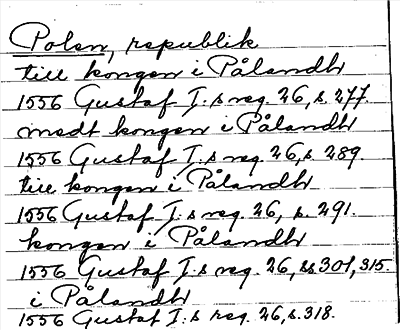 Polen, republik
till kongen i Pålandh
1556 Gustaf I:s reg. 26, s. 277.
medt kongen i Pålandh
1556 Gustaf I:s reg. 26, s. 289.
till kongen i Pålandh
1556 Gustaf I:s reg. 26, s. 291.
kongen i Pålandh
1556 Gustaf I:s reg. 26, ss 301, 315.
i Pålandh
1556 Gustaf I:s reg. 26, s. 318.